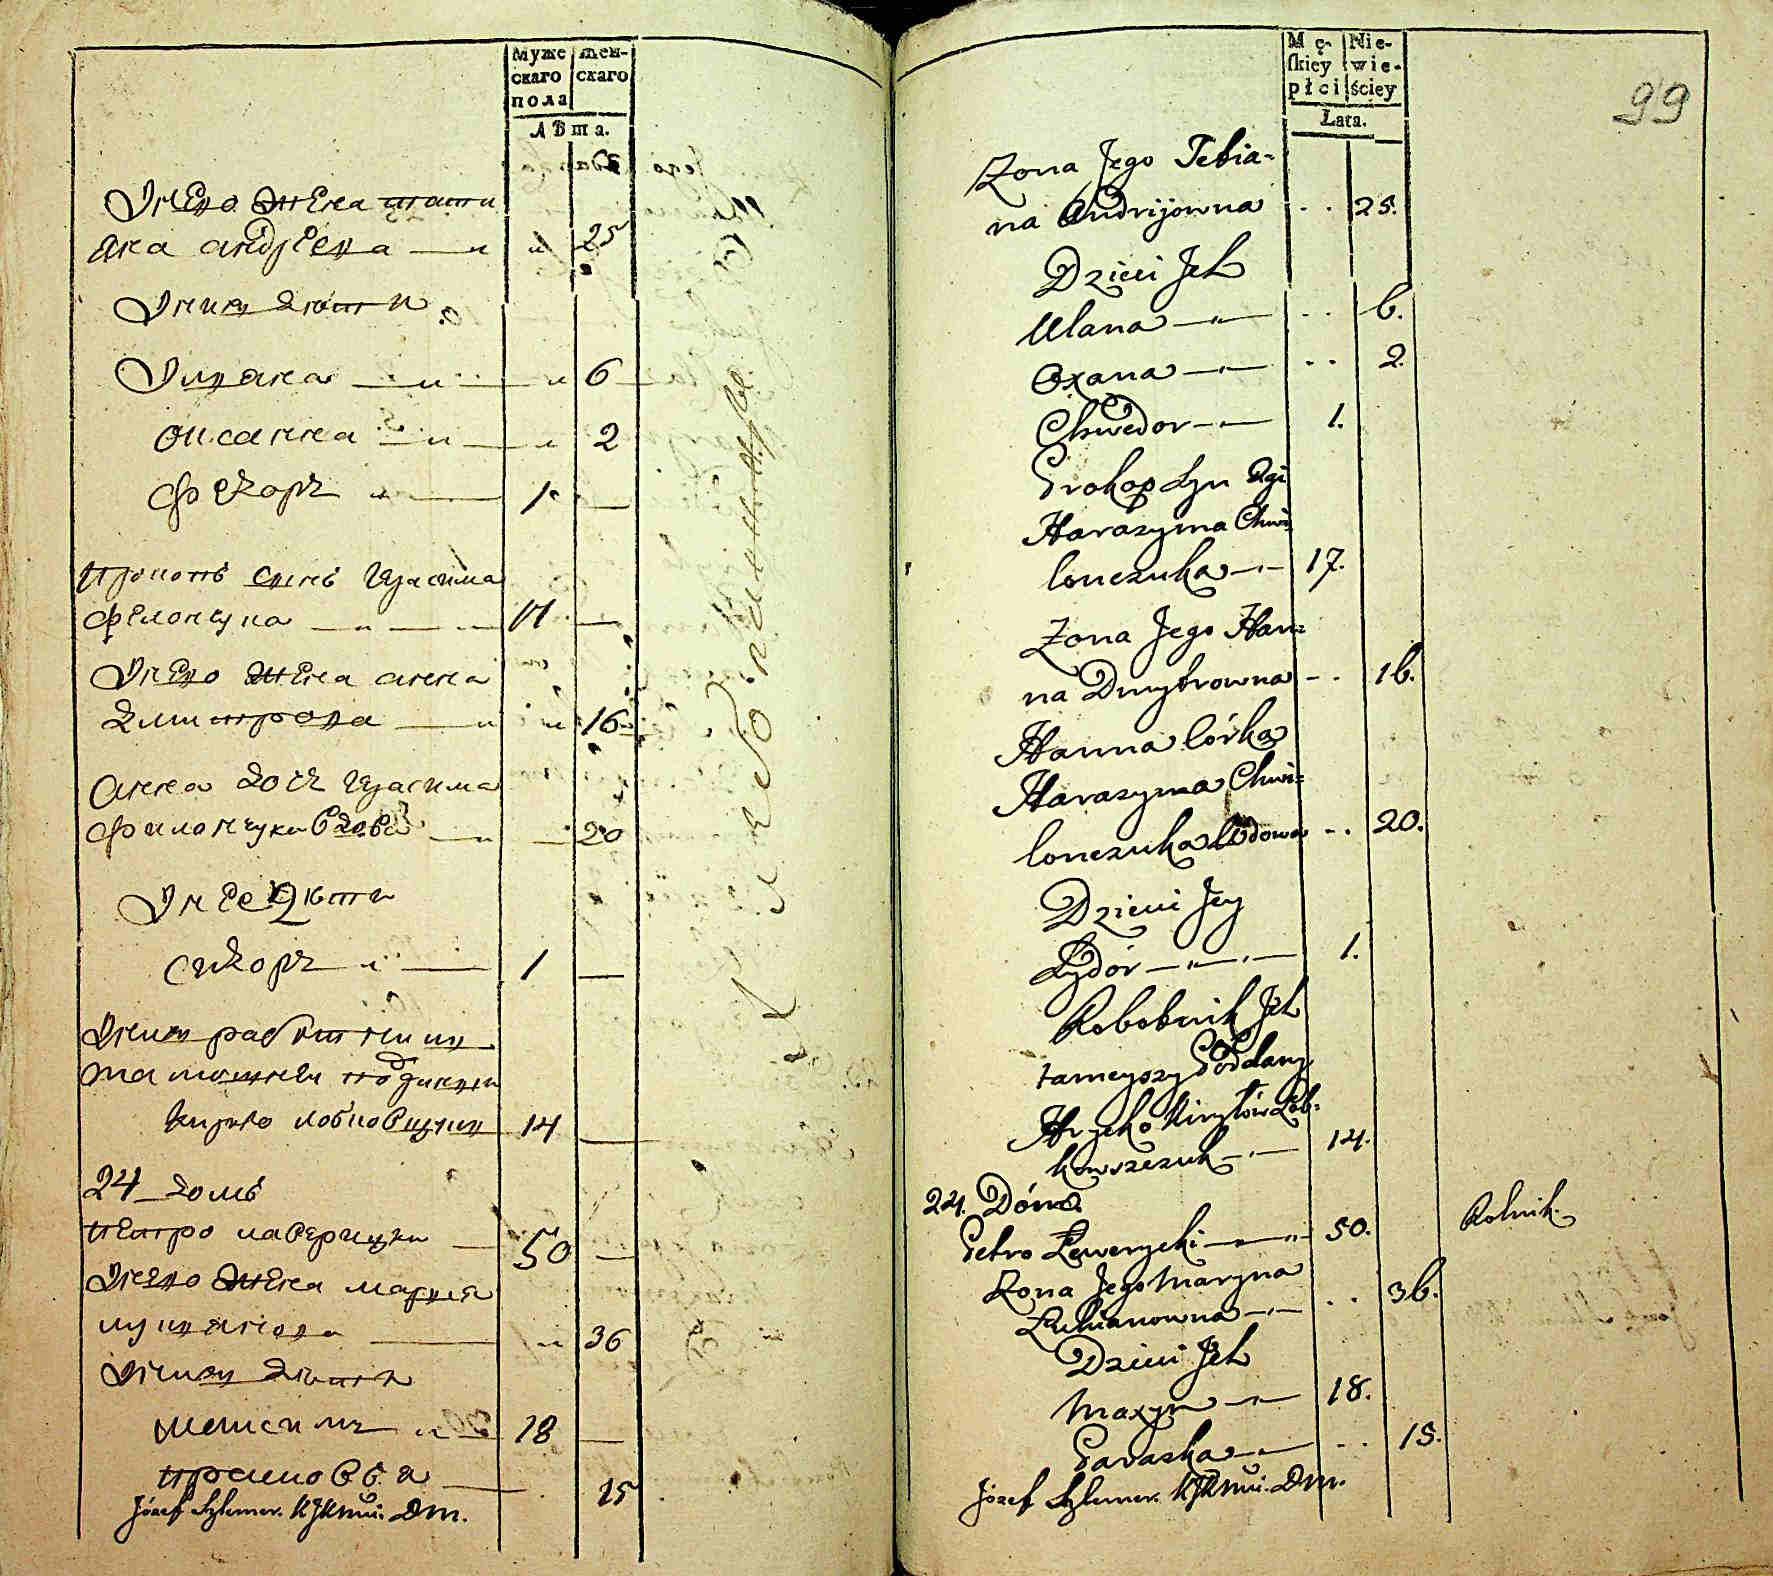 Муже
скаго
пола
Жен-
скаго
Лѣта.
Унего жена тати
яна андреева 25
Унихъ дети
Уляна 6
Оксанна 2
Федоръ 1
Прокопъ сынъ Герасима
Филончука 17
Унего жена анна
Дмитрова 16
Анна дочь Герасима
Филончука вдова 20
Унее дети
Сидоръ 1
Унихъ работникъ
14
24 домъ
Петро 50
Унего жена Мария
лукянова 36
Унихъ дети
Максимъ 18
15
Józef Szlemer. Dm.
Mę-
skiey
płci
Nie-
wie-
ściey
Lata.
99
Zona Jego Tetia-
na Andrijowna 25.
Dzieci Jch
Ulana 6.
Oxana 2.
Chwedor 1.
Prokop Syn
Harasyma Chwi-
lonczuka 17.
Zona Jego Han-
na Dmytrowna 16.
Hanna Córka
Harasyma Chwi-
lonczuka Wdowa 20.
Dzieci Jey
Sydor 1.
Robotnik Jch
tameyszy Poddany
Hryćko Kiryłów Łob-
kowszczuk 14.
24. Dóm
Petro Ławerycki 50. Rolnik.
Zona Jego Maryna
Łukianowna 36.
Dzieci Jch
Maxym 18.
Paraska 15.
Józef Szlemer. Dm.